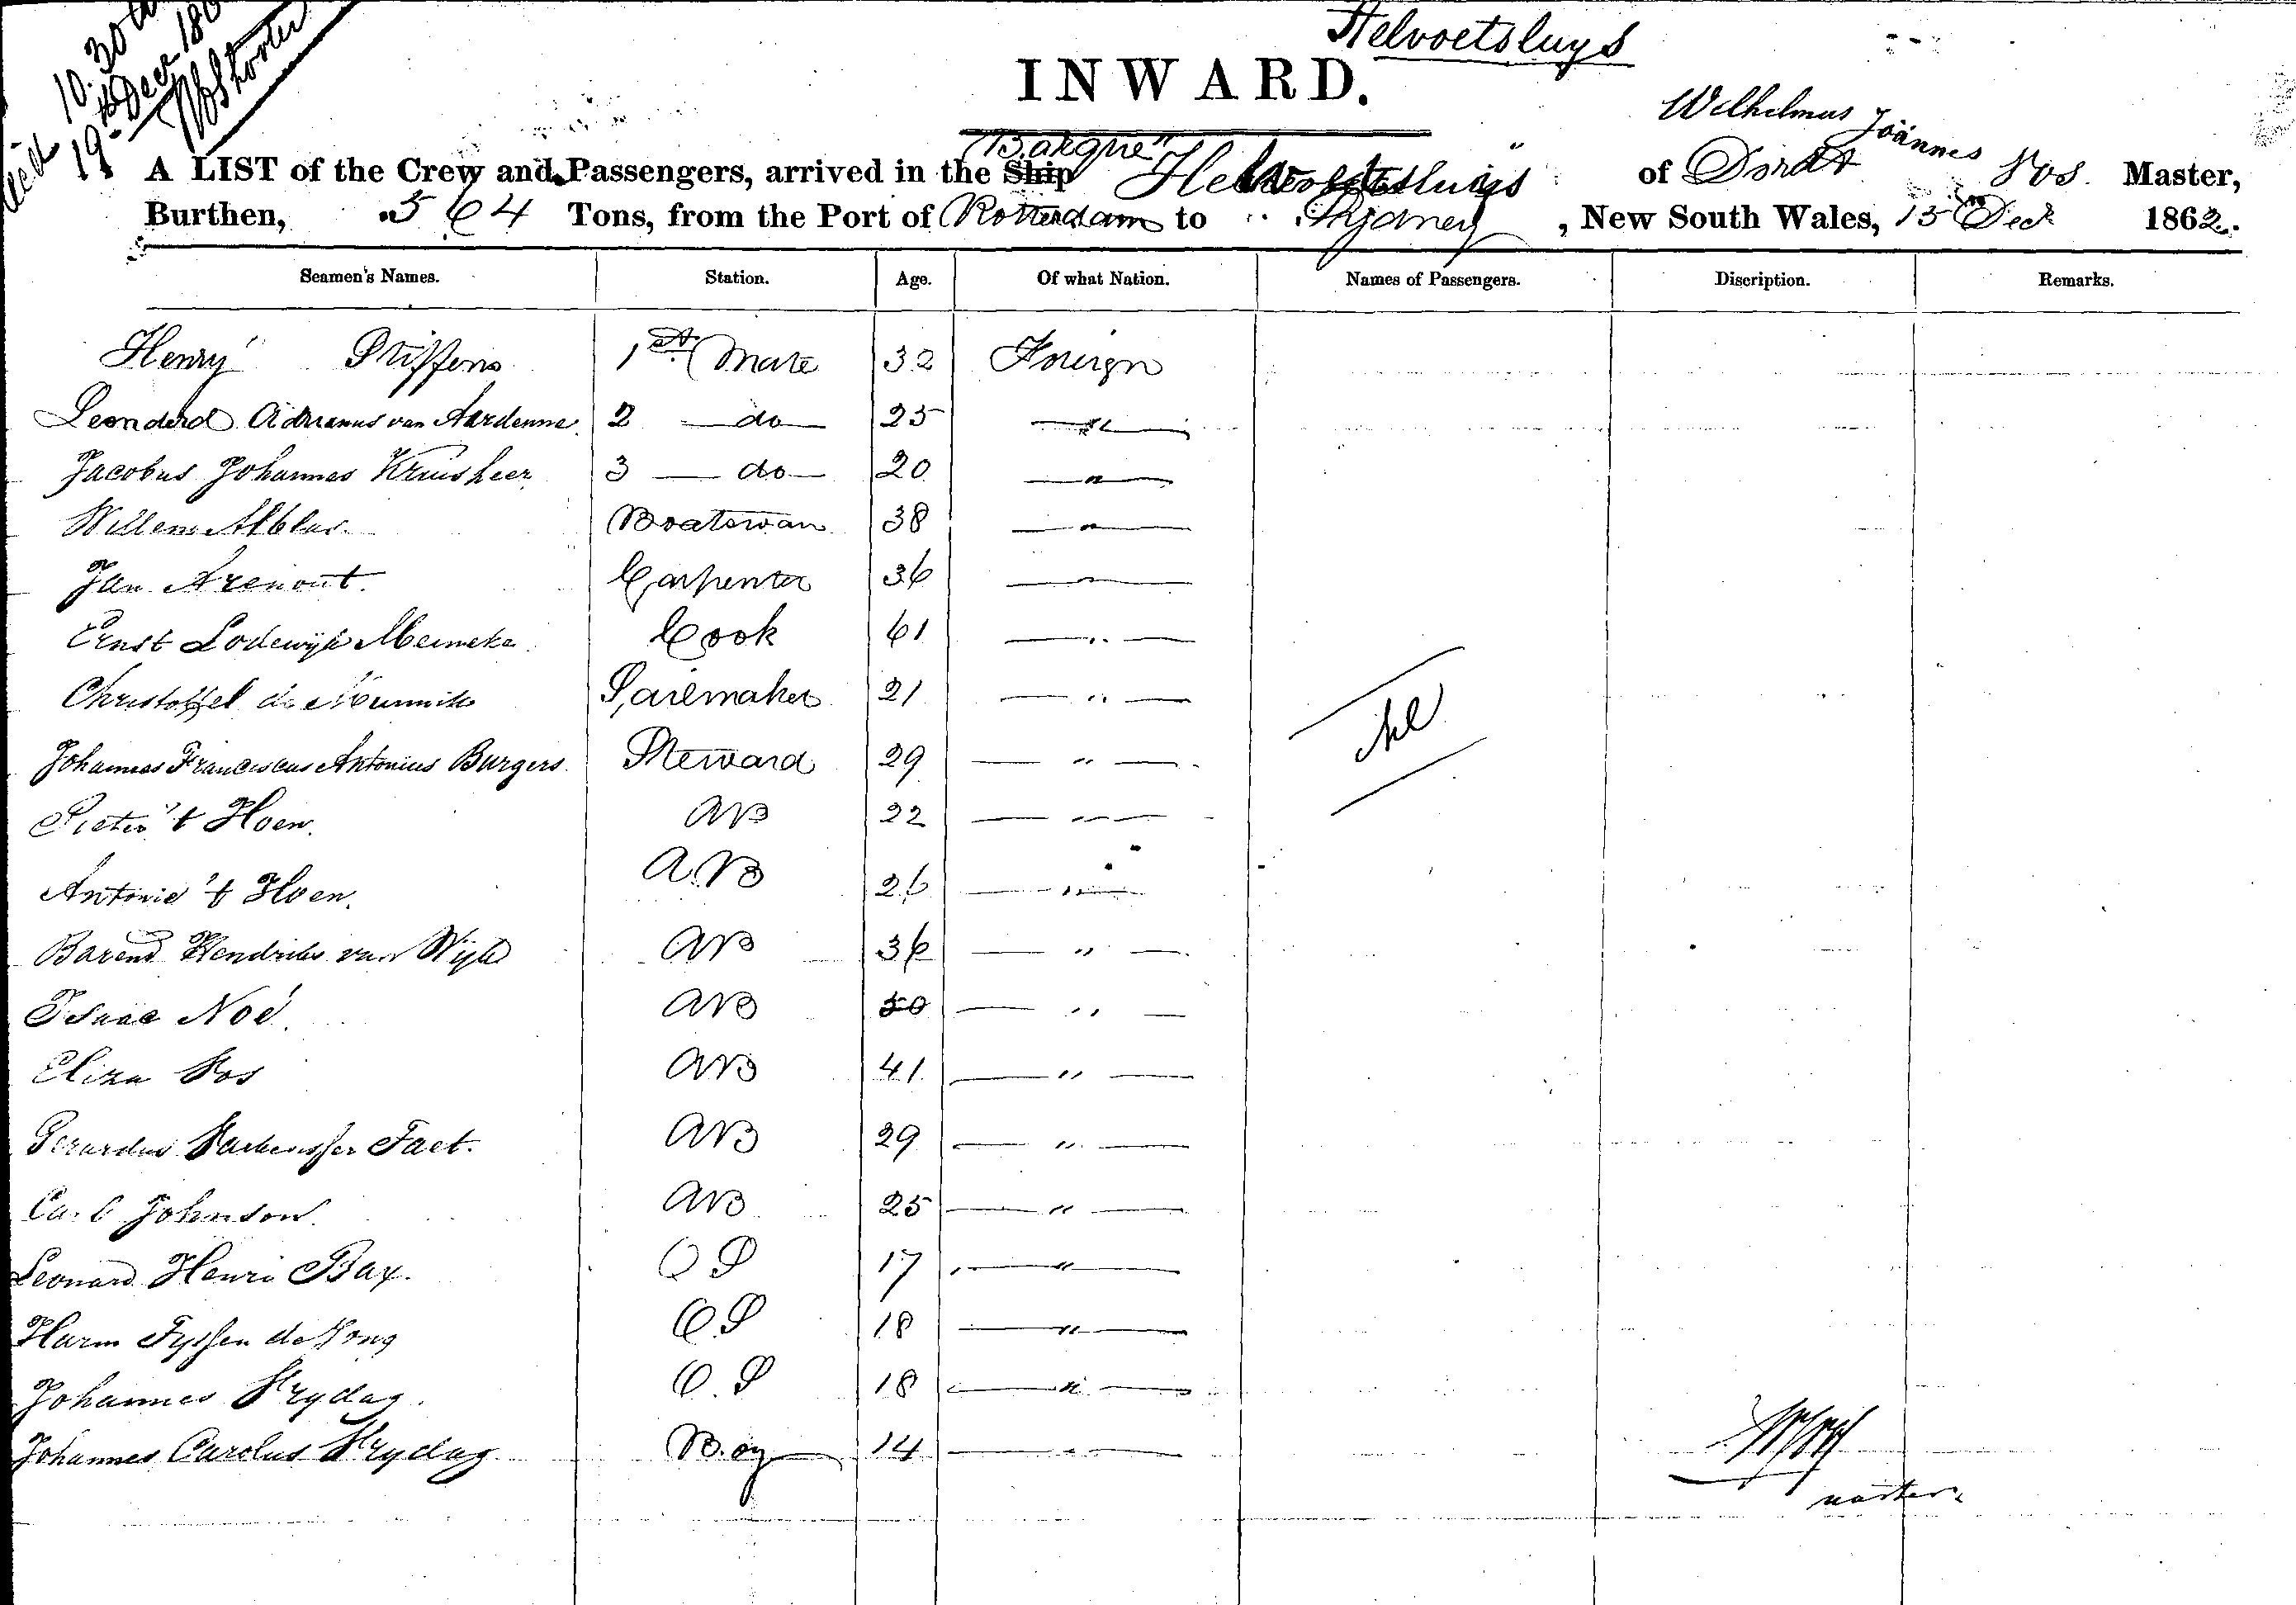 Helvoetsluys
INWARD.
10.30 am
19 Decr 186
Wilhelmus Joännes Vos
A LIST of the Crew and Passengers, arrived in the Ship "Barque" Helvoetsluijs of Dordt Master,
Burthen, 564 Tons, from the Port of Rotterdam to Sydney, New South Wales, 15th Decr 1862.
Seamen's Names. Station. Age. Of what Nation. Names of Passengers. Discription. Remarks.
Henry Stiffens 1st Mate 32 Foreign
Leonderd Adrianus van Aardenne 2 — do — 25 — " —
Jacobus Johannes Kruisheer 3 — do — 20 — " —
Willem Alblas Boatswan 38 — " —
Jan Arenout Carpenter 36 — " —
Ernst Lodewijk Meineke Cook 61 — " —
Christoffel de Munnik Sailmaker 21 — " —
Johannes Franciscus Antonius Burgers Steward 29 — " —
Pieter 't Hoen AB 22 — " —
Antonie 't Hoen A.B 26 — " —
Barend Hendriks van Wijk AB 36 — " —
Isaac Noë AB 50 — " —
Eliza Vos AB 41 — " —
Gerardus Faet. AB 29 — " —
Carl Johnson AB 25 — " —
Leonard Henri Bax. OS 17 — " —
Harm Tyssen de Jong OS 18 — " —
Johannes Vrydag. O.S 18 — " —
Johannes Carolus Vrydag Boy 14 — " —
master